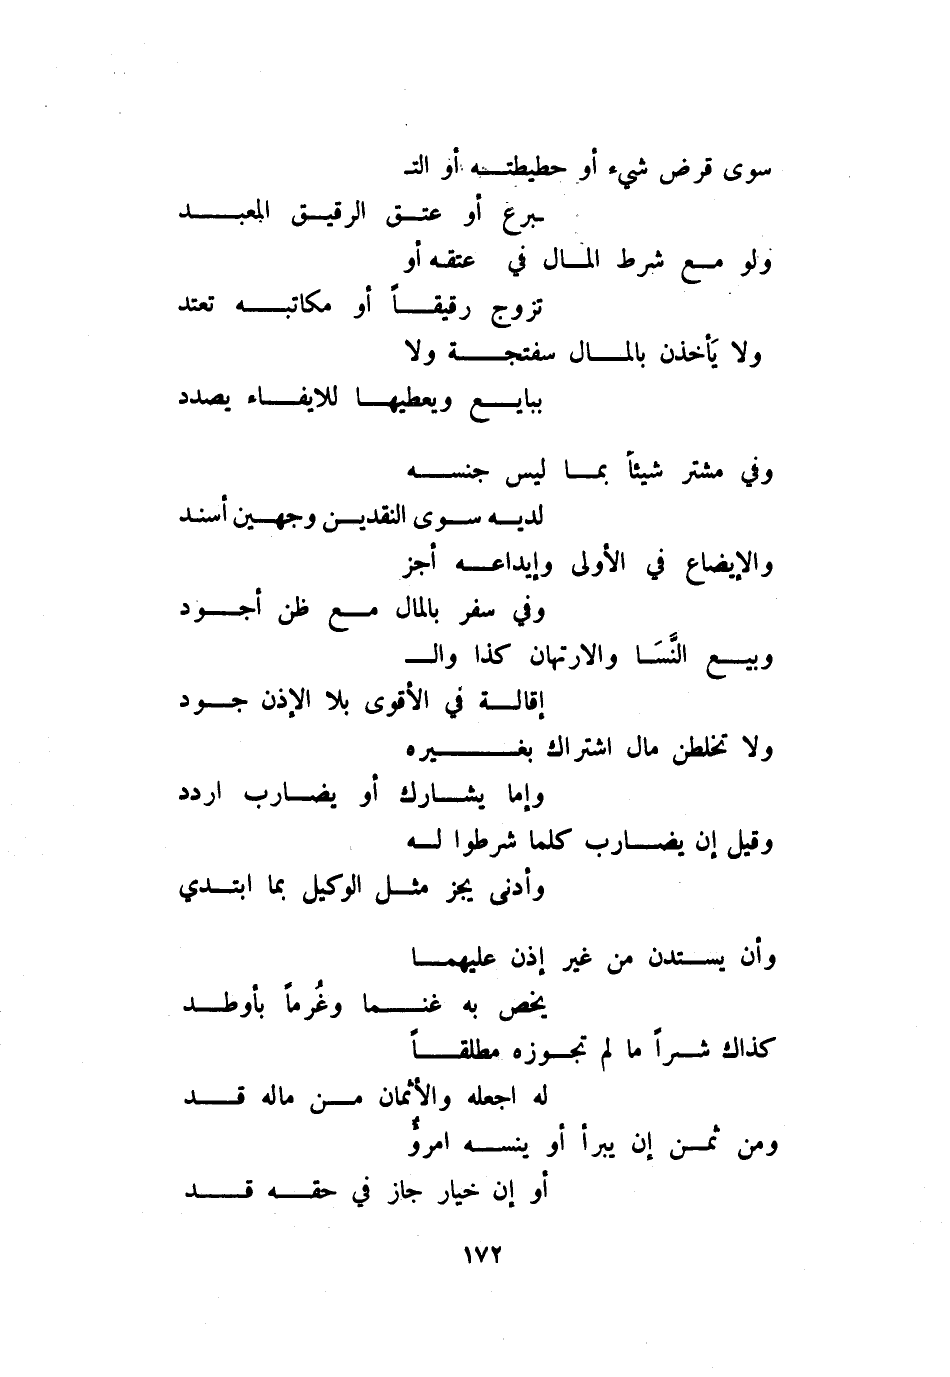 سوى قرض شيء أو حطيطته أو التـ
ـبرع أو عتق الرقيق المعبد
ولو مع شرط المال في عتقه أو
تزوج رقيقاً أو مكاتبه تعتد
ولا يَأخذن بالمال سفتجة ولا
ببايع ويعطيها للايفاء يصدد
وفي مشتر شيئاً بما ليس جنسه
لديه سوى النقدين وجهين أسند
والإيضاع في الأولى وإيداعه أجز
وفي سفر بالمال مع ظن أجود
وبيع النَّسَا والارتهان كذا والـ
إقالة في الأقوى بلا الإذن جود
ولا تخلطن مال اشتراك بغيره
وإما يشارك أو يضارب اردد
وقيل إن يضارب كلما شرطوا له
وأدنى يجز مثل الوكيل بما ابتدي
وأن يستدن من غير إذن عليهما
يخص به غنما وغُرماً بأوطد
كذاك شراً ما لم تجوزه مطلقاً
له اجعله والأثمان من ماله قد
ومن ثمن إن يبرأ أو ينسه امروٌ
أو إن خيار جاز في حقه قد
١٧٢